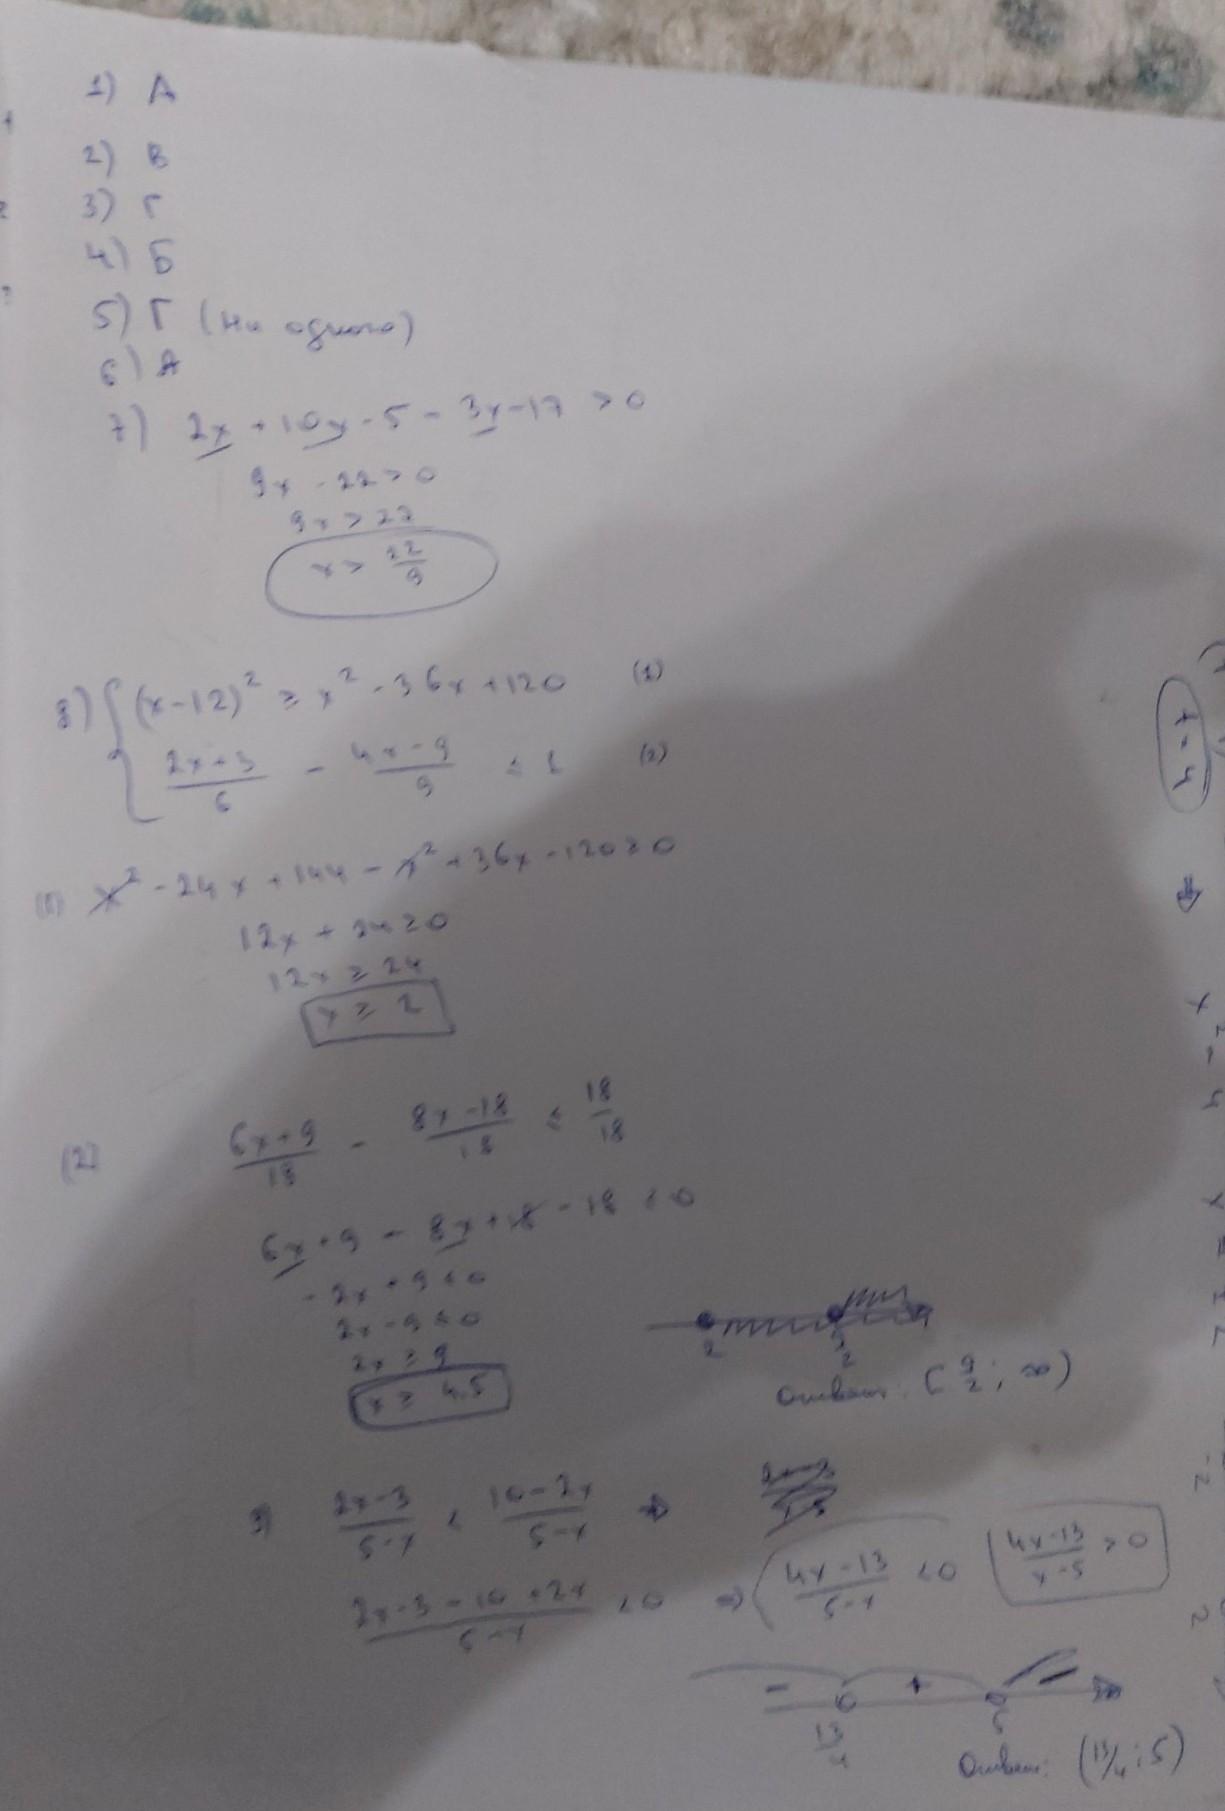 1) А
2) В
3) Г
4) Б
5) Г (Ни одного)
6) А
7) 2x + 10x - 5 - 3x - 17 > 0
9x - 22 > 0
9x > 22
x > 22/9
8) { (x-12)² ≥ x² - 36x + 120 (1)
(2x+3)/6 - (4x-9)/9 ≤ 1 (2)
(1) x² - 24x + 144 - x² + 36x - 120 ≥ 0
12x + 24 ≥ 0
12x ≥ 24
x ≥ 2
(2) (6x+9)/18 - (8x-18)/18 ≤ 18/18
6x + 9 - 8x + 18 - 18 ≤ 0
-2x + 9 ≤ 0
2x - 9 ≤ 0
2x ≥ 9
x ≥ 4.5
2 9/2
Ответ: [9/2; ∞)
9) (2x-3)/(5-x) < (10-2x)/(5-x) ⇒
(2x-3-10+2x)/(5-x) < 0 ⇒ (4x-13)/(5-x) < 0 (4x-13)/(x-5) > 0
- + -
13/4 5
Ответ: (13/4; 5)